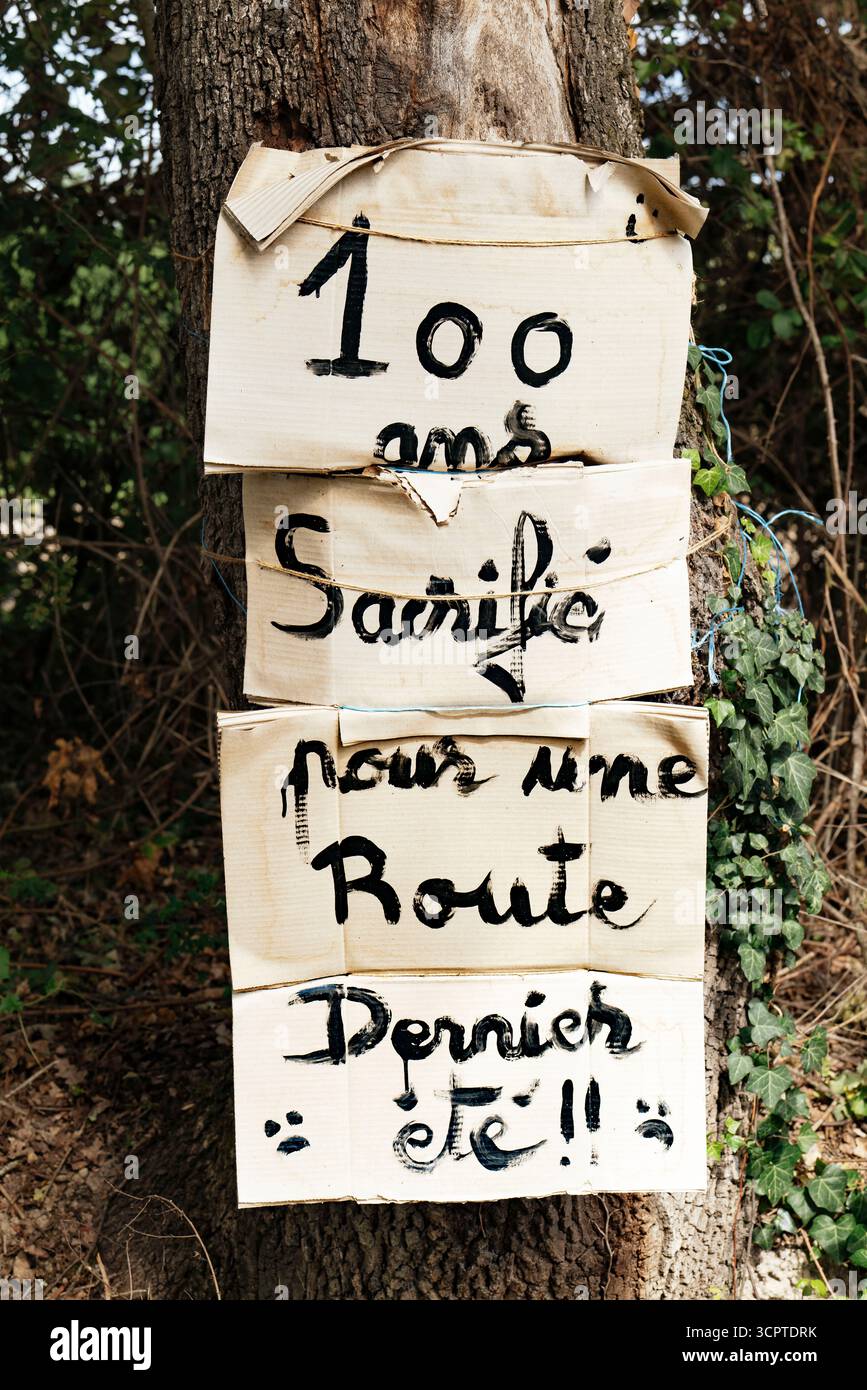 100
ans
Sacrifié
pour une
Route
Dernier
été !!
alamy
Image ID: 3CPTDRK
www.alamy.com